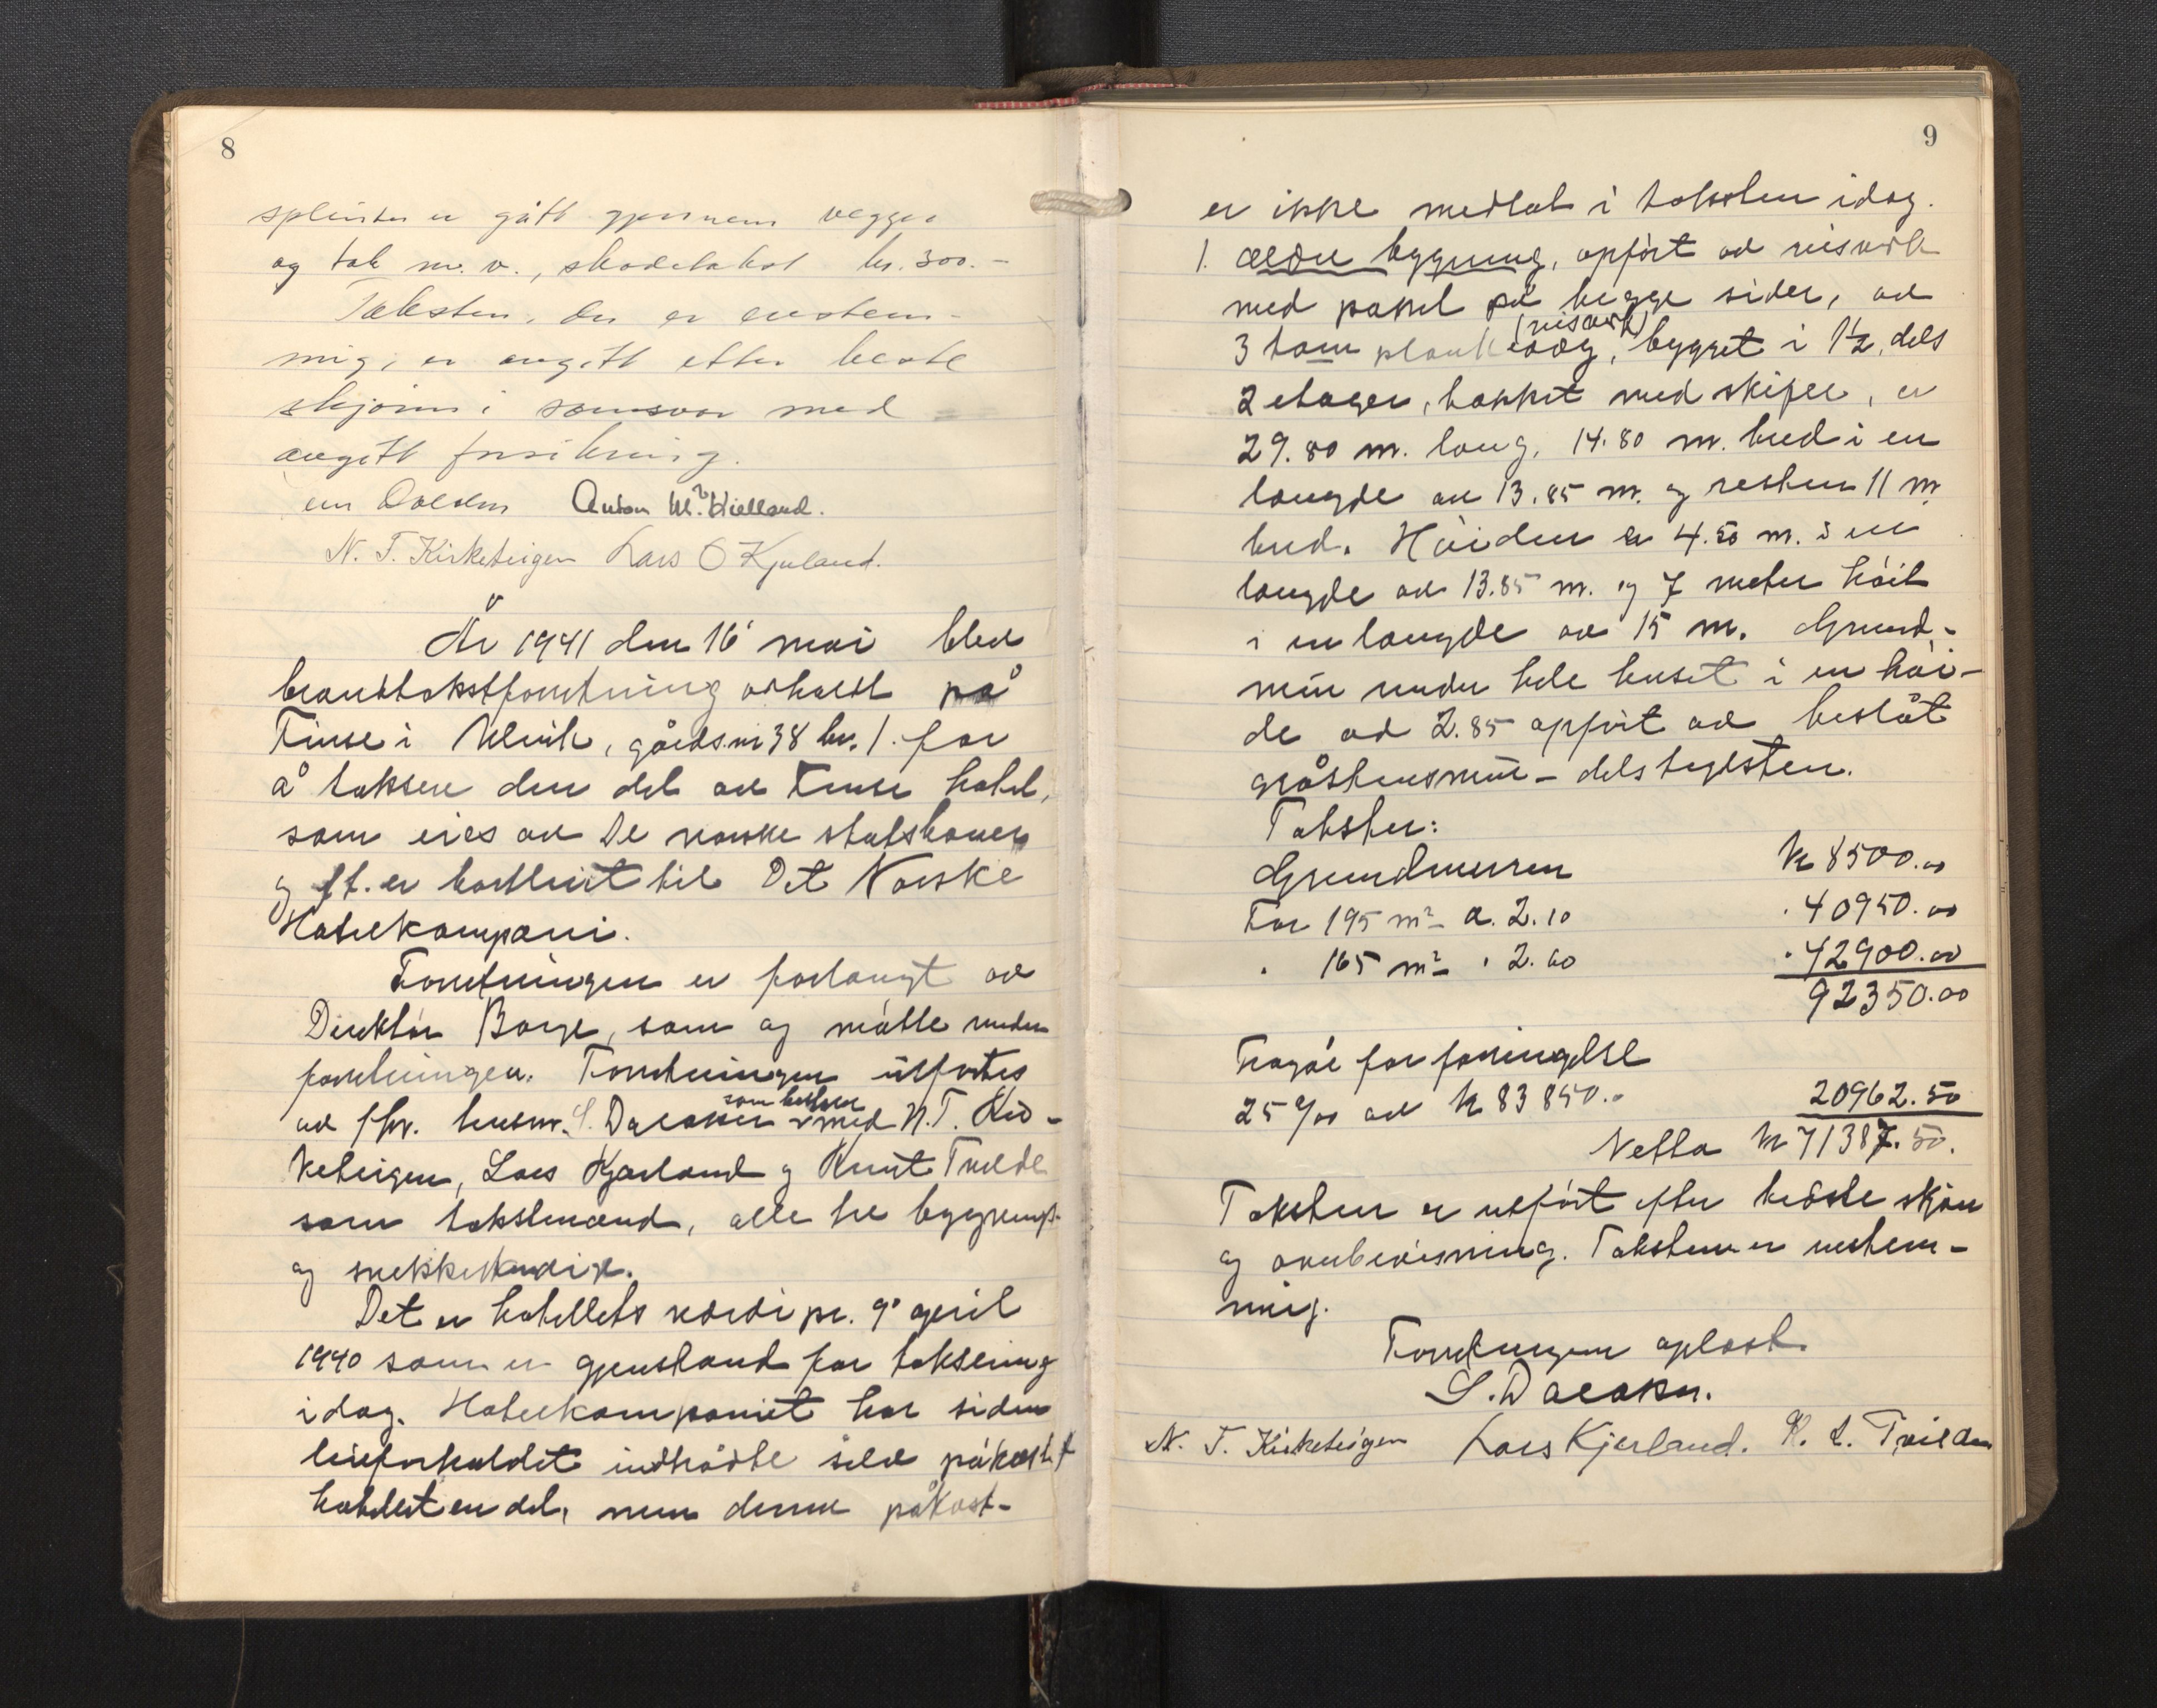 8
splinter er gått gjennem vegger
og tak m. v., skadetakst kr. 300.-
Taksten, der er enstem-
mig, er avgitt etter beste
skjønn i samsvar med
avgitt forsikring.
Anton M. Kielland.
N. T. Kirketeigen Lars O Kjerland.
År 1941 den 16' mai blev
brandtakstforretning avholdt på
Finse i Ulvik, gårds.nr 38 br. 1. for
å taksere den del av Finse hotel,
som eies av De norske statsbaner
og f.t. er bortleiet til Det Norske
Hotelkompani.
Forretningen er forlangt av
Direktør Borge, som og møtte under
forretningen. Forretningen utførtes
av fhv. lensm. S. Dalaker som bestyrer med N. T. Kir-
keteigen, Lars Kjerland og Knut Tveide
som takstmænd, alle tre bygnings-
og snekkerkyndige.
Det er hotellets værdi pr. 9' april
1940 som er gjenstand for taksering
idag. Hotelkompaniet har siden
leieforholdet indtrådte selv påkostet
hotellet en del, men denne påkost-
9
er ikke medtat i taksten idag.
1. ældre bygning, opført av reisverk
med panel på begge sider, av
3 tom plankevæg, (reisverk) bygget i 1½, dels
2 etager, tækket med skifer, er
29.80 m. lang, 14.80 m. bred i en
længde av 13.85 m. og resten 11 m.
bred. Høiden er 4.50 m. i en
længde av 13.85 m. og 7 meter høit
i en længde av 15 m. Grund-
mur under hele huset i en høi-
de av 2.85 opført av
gråstensmur - dels teglsten.
Takster:
Grundmuren kr 8500.00
For 195 m² a. 2.10 " 40950.00
" 165 m² " 2.60 " 42900.00
92350.00
Fragår for forringelse
25 % av kr 83850.- 20962.50
Netto kr 71387.50.
Taksten er utført efter bedste skjøn
og overbevisning. Taksten er enstem-
mig.
Forretningen opløst.
S. Dalaker.
N. T. Kirketeigen Lars Kjerland. K. L.